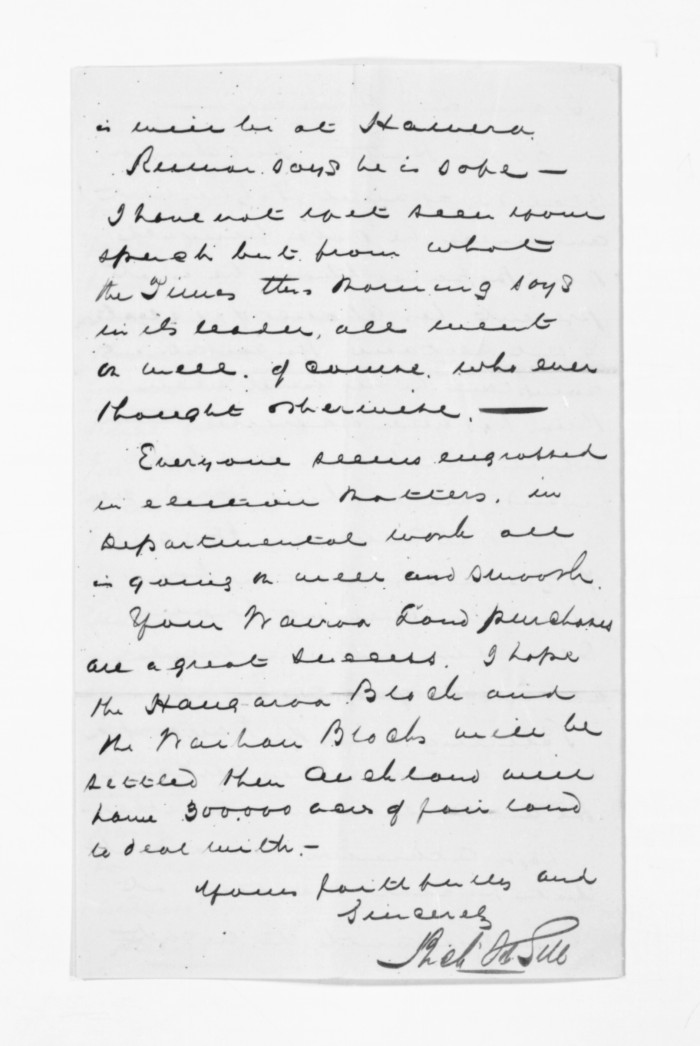 is will be at Hawera.
Rumor says he is safe —
I have not yet seen your
speech but from what
the Times this morning says
in its leader, all went
on well. of course. who ever
thought otherwise. —
Everyone seems engrossed
in election matters. in
Departmental work all
is going on well and smooth.
Your Wairoa Land purchases
are a great success. I hope
the Hangaroa Block and
the Waihau Blocks will be
settled then Auckland will
have 300.000 acres of fair land
to deal with. —
Yours faithfully and
Sincerely
Rich Jn Gill